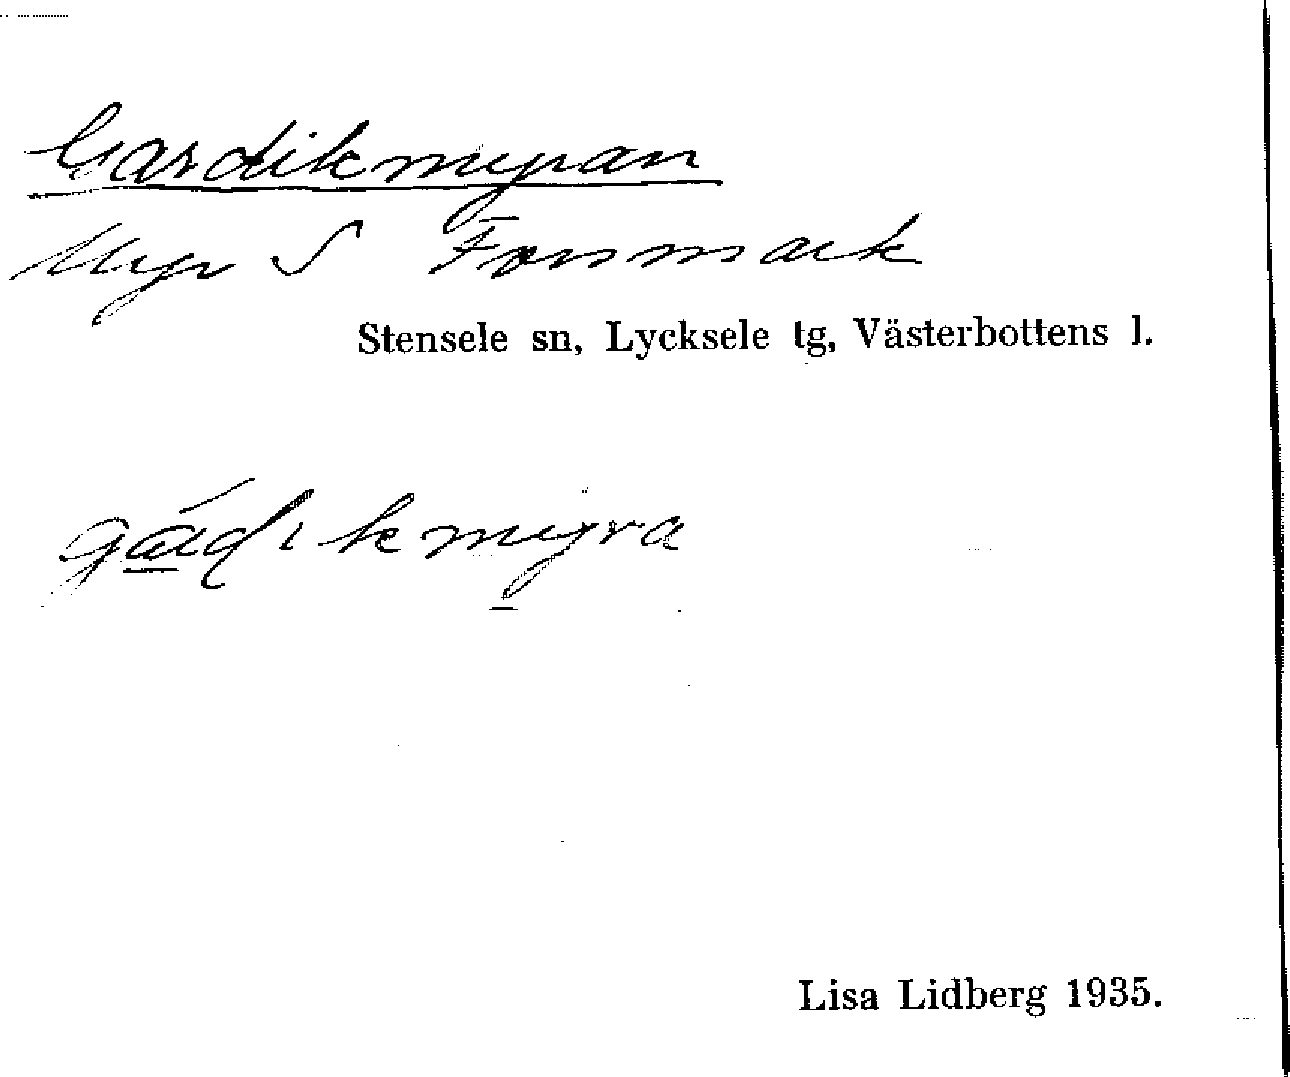 Gardikmyran
Myr S Forsmark
Stensele sn, Lycksele tg, Västerbottens l.
gádikmyra
Lisa Lidberg 1935.